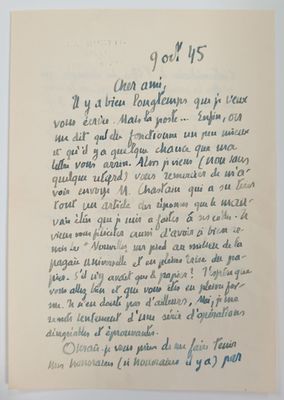 9 oct 45
Cher ami,
Il y a bien longtemps que je veux
vous écrire. Mais la poste... Enfin, on
me dit qu'elle fonctionne un peu mieux
et qu'il y a quelque chance que ma
lettre vous arrive. Alors je viens (non sans
quelque retard) vous remercier de m'a-
voir envoyé M. Chastain qui a su tirer
tout un article des réponses que le mau-
vais élève que je suis a faites à
viens vous féliciter aussi d'avoir si bien re-
mis les "Nouvelles" sur pied au milieu de la
pagaïe universelle et en pleine crise du pa-
pier. S'il n'y avait que le papier! J'espère que
vous allez bien et que vous êtes en pleine for-
me. Je n'en doute pas d'ailleurs. Moi, je me
remets lentement d'une série d'opérations
désagréables et éprouvantes.
je vous prie de me faire tenir
mes honoraires (si honoraires il y a) par